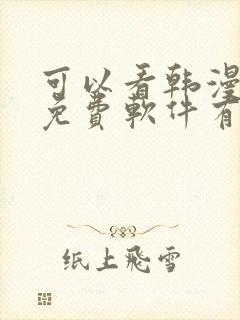 可以看韩漫
免费軟件有
纸上飛雪